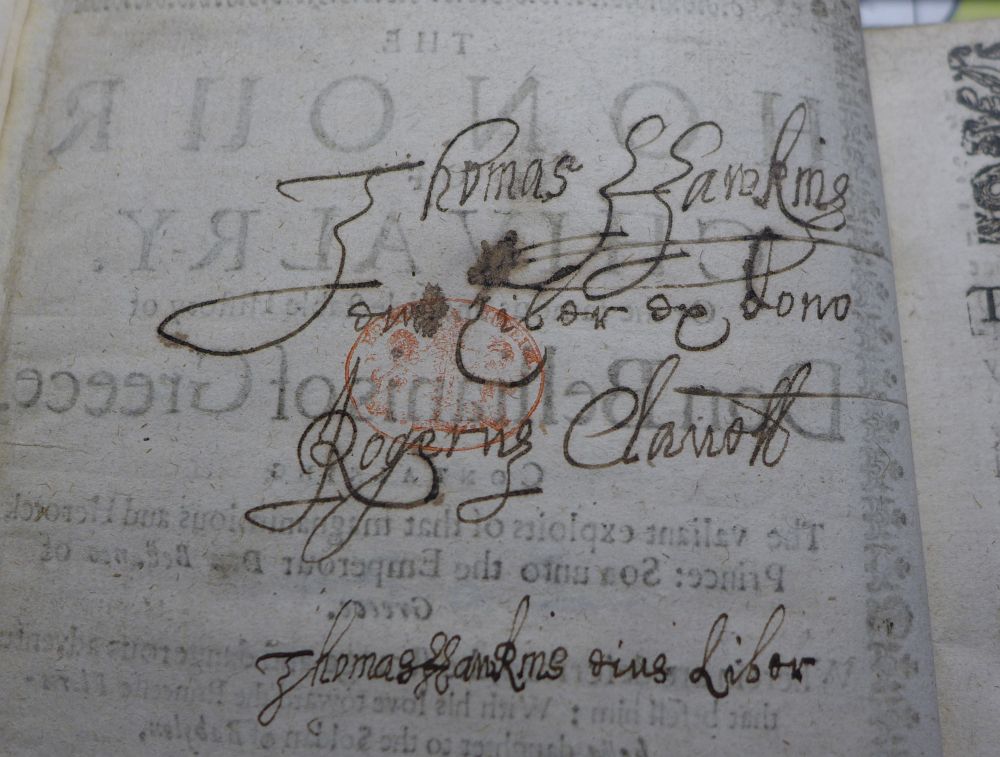 Thomas Hawkins
eius Liber ex dono
Rogerus Clavell
Thomas Hawkins eius Liber
THE
HONOUR
OF
CHIVALRY.
Don Bellianis of Greece.
The valiant exploits of that magnanimous and Heroick
Prince: Son unto the Emperour Don Bellaneo of
Greece.
dangerous adventu
that befell him: With his love towards the Princesse Flora-
daughter to the Soldan of Babylon,